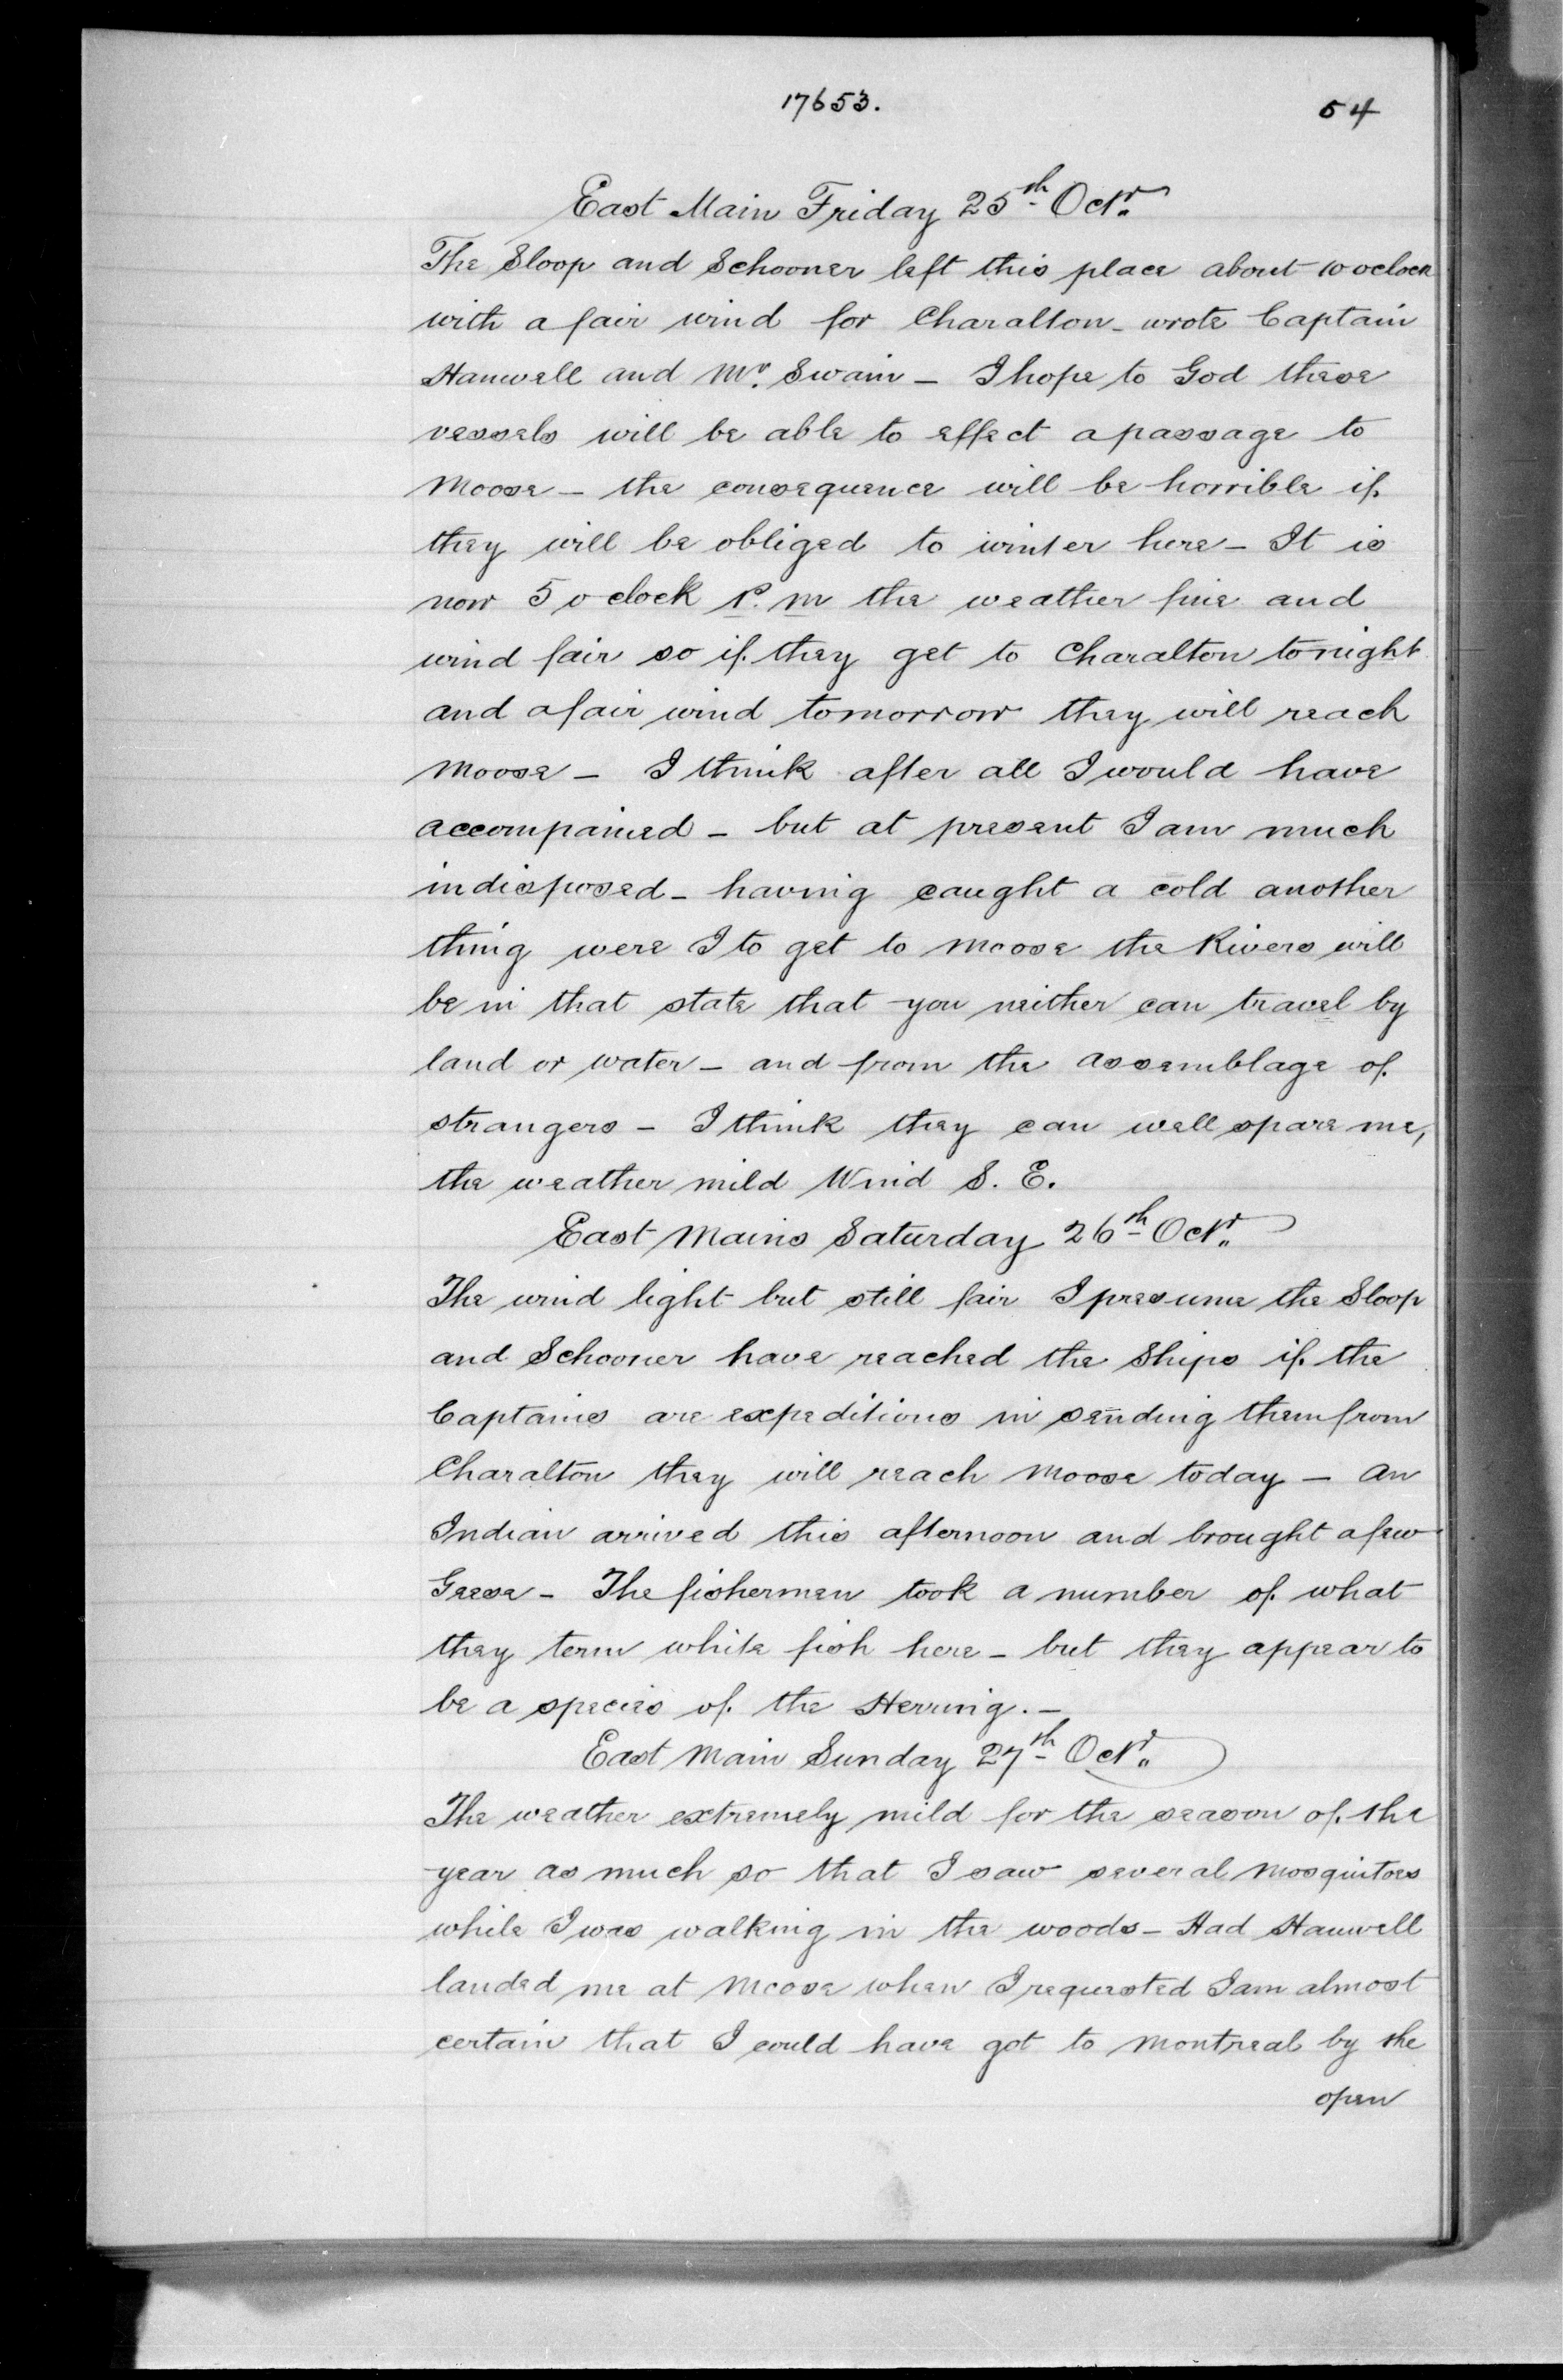 17653.
54
East Main Friday 25th Octr.
The Sloop and Schooner left this place about 10 oclock
with a fair wind for Charalton - wrote Captain
Hanwell and Mr. Swain - I hope to God these
vessels will be able to effect a passage to
Moose - the consequence will be horrible if
they will be obliged to winter here - It is
now 5 o clock P. M the weather fine and
wind fair so if they get to Charalton tonight
and a fair wind tomorrow they will reach
Moose - I think after all I would have
accompanied - but at present I am much
indisposed - having caught a cold another
thing were I to get to Moose the Rivers will
be in that state that you neither can travel by
land or water - and from the assemblage of
strangers - I think they can well spare me,
the weather mild Wind S. E.
East Mains Saturday 26th Octr.
The wind light but still fair I presume the Sloop
and Schooner have reached the Ships if the
Captains are expeditious in sending them from
Charalton they will reach Moose today - An
Indian arrived this afternoon and brought a few
Geese - The fishermen took a number of what
they term white fish here - but they appear to
be a species of the Herring. -
East Main Sunday 27th Octr.
The weather extremely mild for the season of the
year as much so that I saw several Mosquitoes
while I was walking in the woods - Had Hanwell
landed me at Moose when I requested I am almost
certain that I could have got to Montreal by the
open